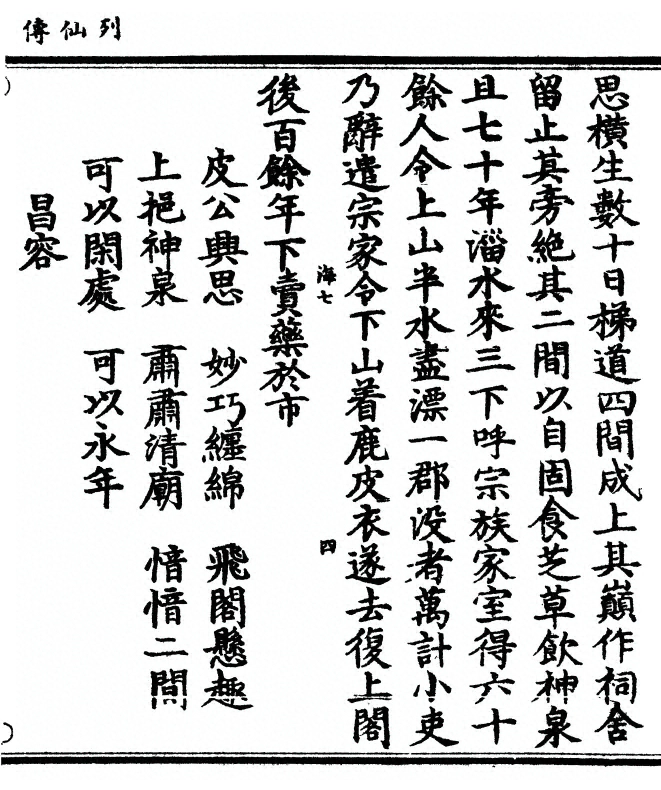 列仙傳
思橫生數十日梯道四間成上其巔作祠舍
留止其旁絶其二間以自固食芝草飲神泉
且七十年淄水來三下呼宗族家室得六十
餘人令上山半水盡漂一郡没者萬計小吏
乃辭遣宗家令下山着鹿皮衣遂去復上閣
海七
四
後百餘年下賣藥於市
皮公興思 妙巧纏綿 飛閣懸趣
上挹神泉 肅肅清廟 愔愔二間
可以閑處 可以永年
昌容